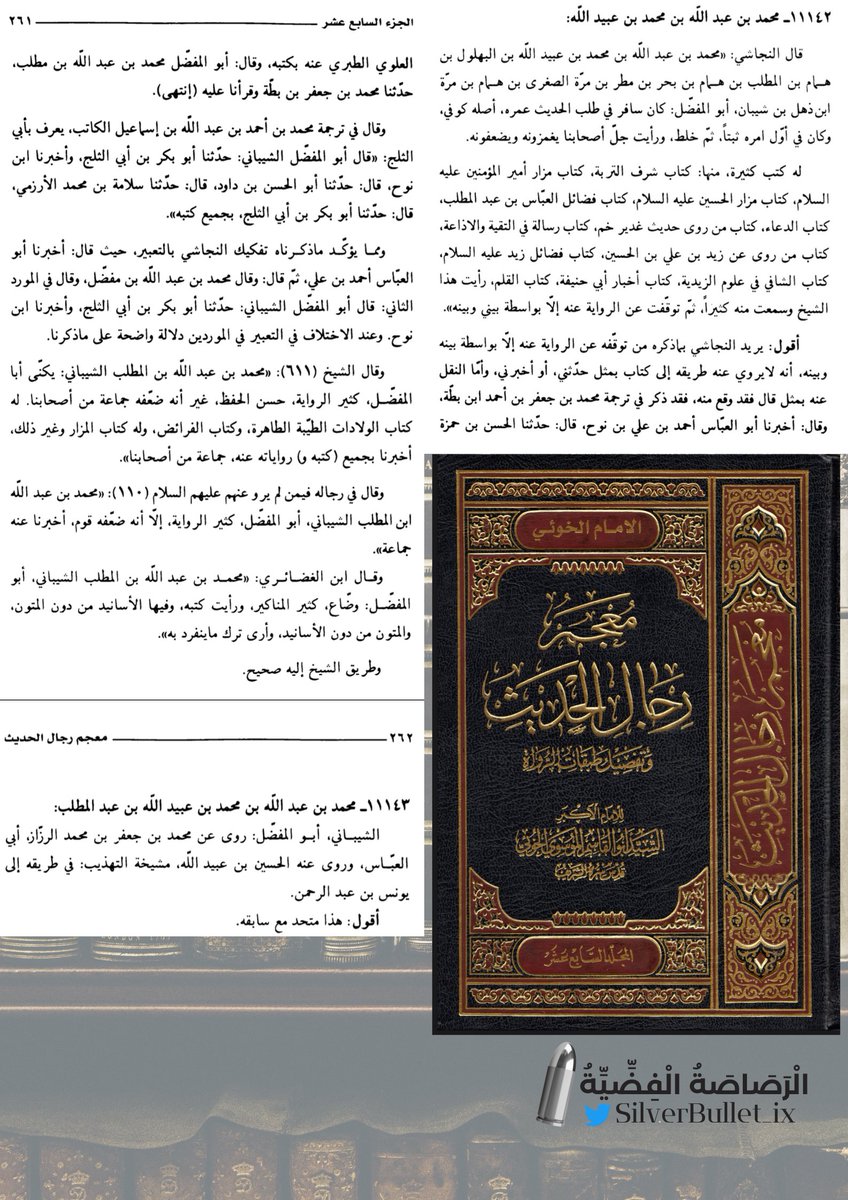 ١١١٤٢ـ محمد بن عبد اللّه بن محمد بن عبيد اللّه:
قال النجاشي: «محمد بن عبد اللّه بن محمد بن عبيد اللّه بن البهلول بن
همام بن المطلب بن همام بن بحر بن مطر بن مرّة الصغرى بن همام بن مرّة
ابن ذهل بن شيبان، أبو المفضل: كان سافر في طلب الحديث عمره، أصله كوفي،
وكان في أوّل امره ثبتاً، ثمّ خلط، ورأيت جلّ أصحابنا يغمزونه ويضعفونه.
له كتب كثيرة، منها: كتاب شرف التربة، كتاب مزار أمير المؤمنين عليه
السلام، كتاب مزار الحسين عليه السلام، كتاب فضائل العبّاس بن عبد المطلب،
كتاب الدعاء، كتاب من روى حديث غدير خم، كتاب رسالة في التقية والاذاعة،
كتاب من روى عن زيد بن علي بن الحسين، كتاب فضائل زيد عليه السلام،
كتاب الشافي في علوم الزيدية، كتاب أخبار أبي حنيفة، كتاب القلم، رأيت هذا
الشيخ وسمعت منه كثيراً، ثمّ توقّفت عن الرواية عنه إلّا بواسطة بيني وبينه».
أقول: يريد النجاشي بماذكره من توقّفه عن الرواية عنه إلّا بواسطة بينه
وبينه، أنه لايروي عنه طريقه إلى كتاب بمثل حدّثني، أو أخبرني، وأمّا النقل
عنه بمثل قال فقد وقع منه، فقد ذكر في ترجمة محمد بن جعفر بن أحمد ابن بطّة،
وقال: أخبرنا أبو العبّاس أحمد بن علي بن نوح، قال: حدّثنا الحسن بن حمزة
الجزء السابع عشر ٢٦١
العلوي الطبري عنه بكتبه، وقال: أبو المفضّل محمد بن عبد اللّه بن مطلب،
حدّثنا محمد بن جعفر بن بطّة وقرأنا عليه (إنتهى).
وقال في ترجمة محمد بن أحمد بن عبد اللّه بن إسماعيل الكاتب، يعرف بأبي
الثلج: «قال أبو المفضّل الشيباني: حدّثنا أبو بكر بن أبي الثلج، وأخبرنا ابن
نوح، قال: حدّثنا أبو الحسن بن داود، قال: حدّثنا سلامة بن محمد الأرزمي،
قال: حدّثنا أبو بكر بن أبي الثلج، بجميع كتبه».
ومما يؤكّد ماذكرناه تفكيك النجاشي بالتعبير، حيث قال: أخبرنا أبو
العبّاس أحمد بن علي، ثمّ قال: وقال محمد بن عبد اللّه بن مفضل، وقال في المورد
الثاني: قال أبو المفضّل الشيباني: حدّثنا أبو بكر بن أبي الثلج، وأخبرنا ابن
نوح. وعند الاختلاف في التعبير في الموردين دلالة واضحة على ماذكرنا.
وقال الشيخ (٦١١): «محمد بن عبد اللّه بن المطلب الشيباني: يكنّى أبا
المفضّل، كثير الرواية، حسن الحفظ، غير أنه ضعّفه جماعة من أصحابنا. له
كتاب الولادات الطيّبة الطاهرة، وكتاب الفرائض، وله كتاب المزار وغير ذلك،
أخبرنا بجميع (كتبه و) رواياته عنه، جماعة من أصحابنا».
وقال في رجاله فيمن لم يرو عنهم عليهم السلام (١١٠): «محمد بن عبد اللّه
ابن المطلب الشيباني، أبو المفضّل، كثير الرواية، إلّا أنه ضعّفه قوم، أخبرنا عنه
جماعة».
وقال ابن الغضائري: «محمد بن عبد اللّه بن المطلب الشيباني، أبو
المفضّل: وضّاع، كثير المناكير، ورأيت كتبه، وفيها الأسانيد من دون المتون،
والمتون من دون الأسانيد، وأرى ترك ماينفرد به».
وطريق الشيخ إليه صحيح.
٢٦٢ معجم رجال الحديث
١١١٤٣ـ محمد بن عبد اللّه بن محمد بن عبيد اللّه بن عبد المطلب:
الشيباني، أبو المفضّل: روى عن محمد بن جعفر بن محمد الرزّاز، أبي
العبّاس، وروى عنه الحسين بن عبيد اللّه، مشيخة التهذيب: في طريقه إلى
يونس بن عبد الرحمن.
أقول: هذا متحد مع سابقه.
الامام الخوئي
مُعْجَمُ
رِجَالِ الْحَدِيثِ
وَتَفْصِيلِ طَبَقَاتِ الرُّوَاةِ
للإمام الأكبر
السيد أبو القاسم الموسوي الخوئي
المجلد السابع عشر
معجم رجال الحديث
١٧
الْرَصَاصَةُ الْفِضِّيَّةُ
SilverBullet_ix